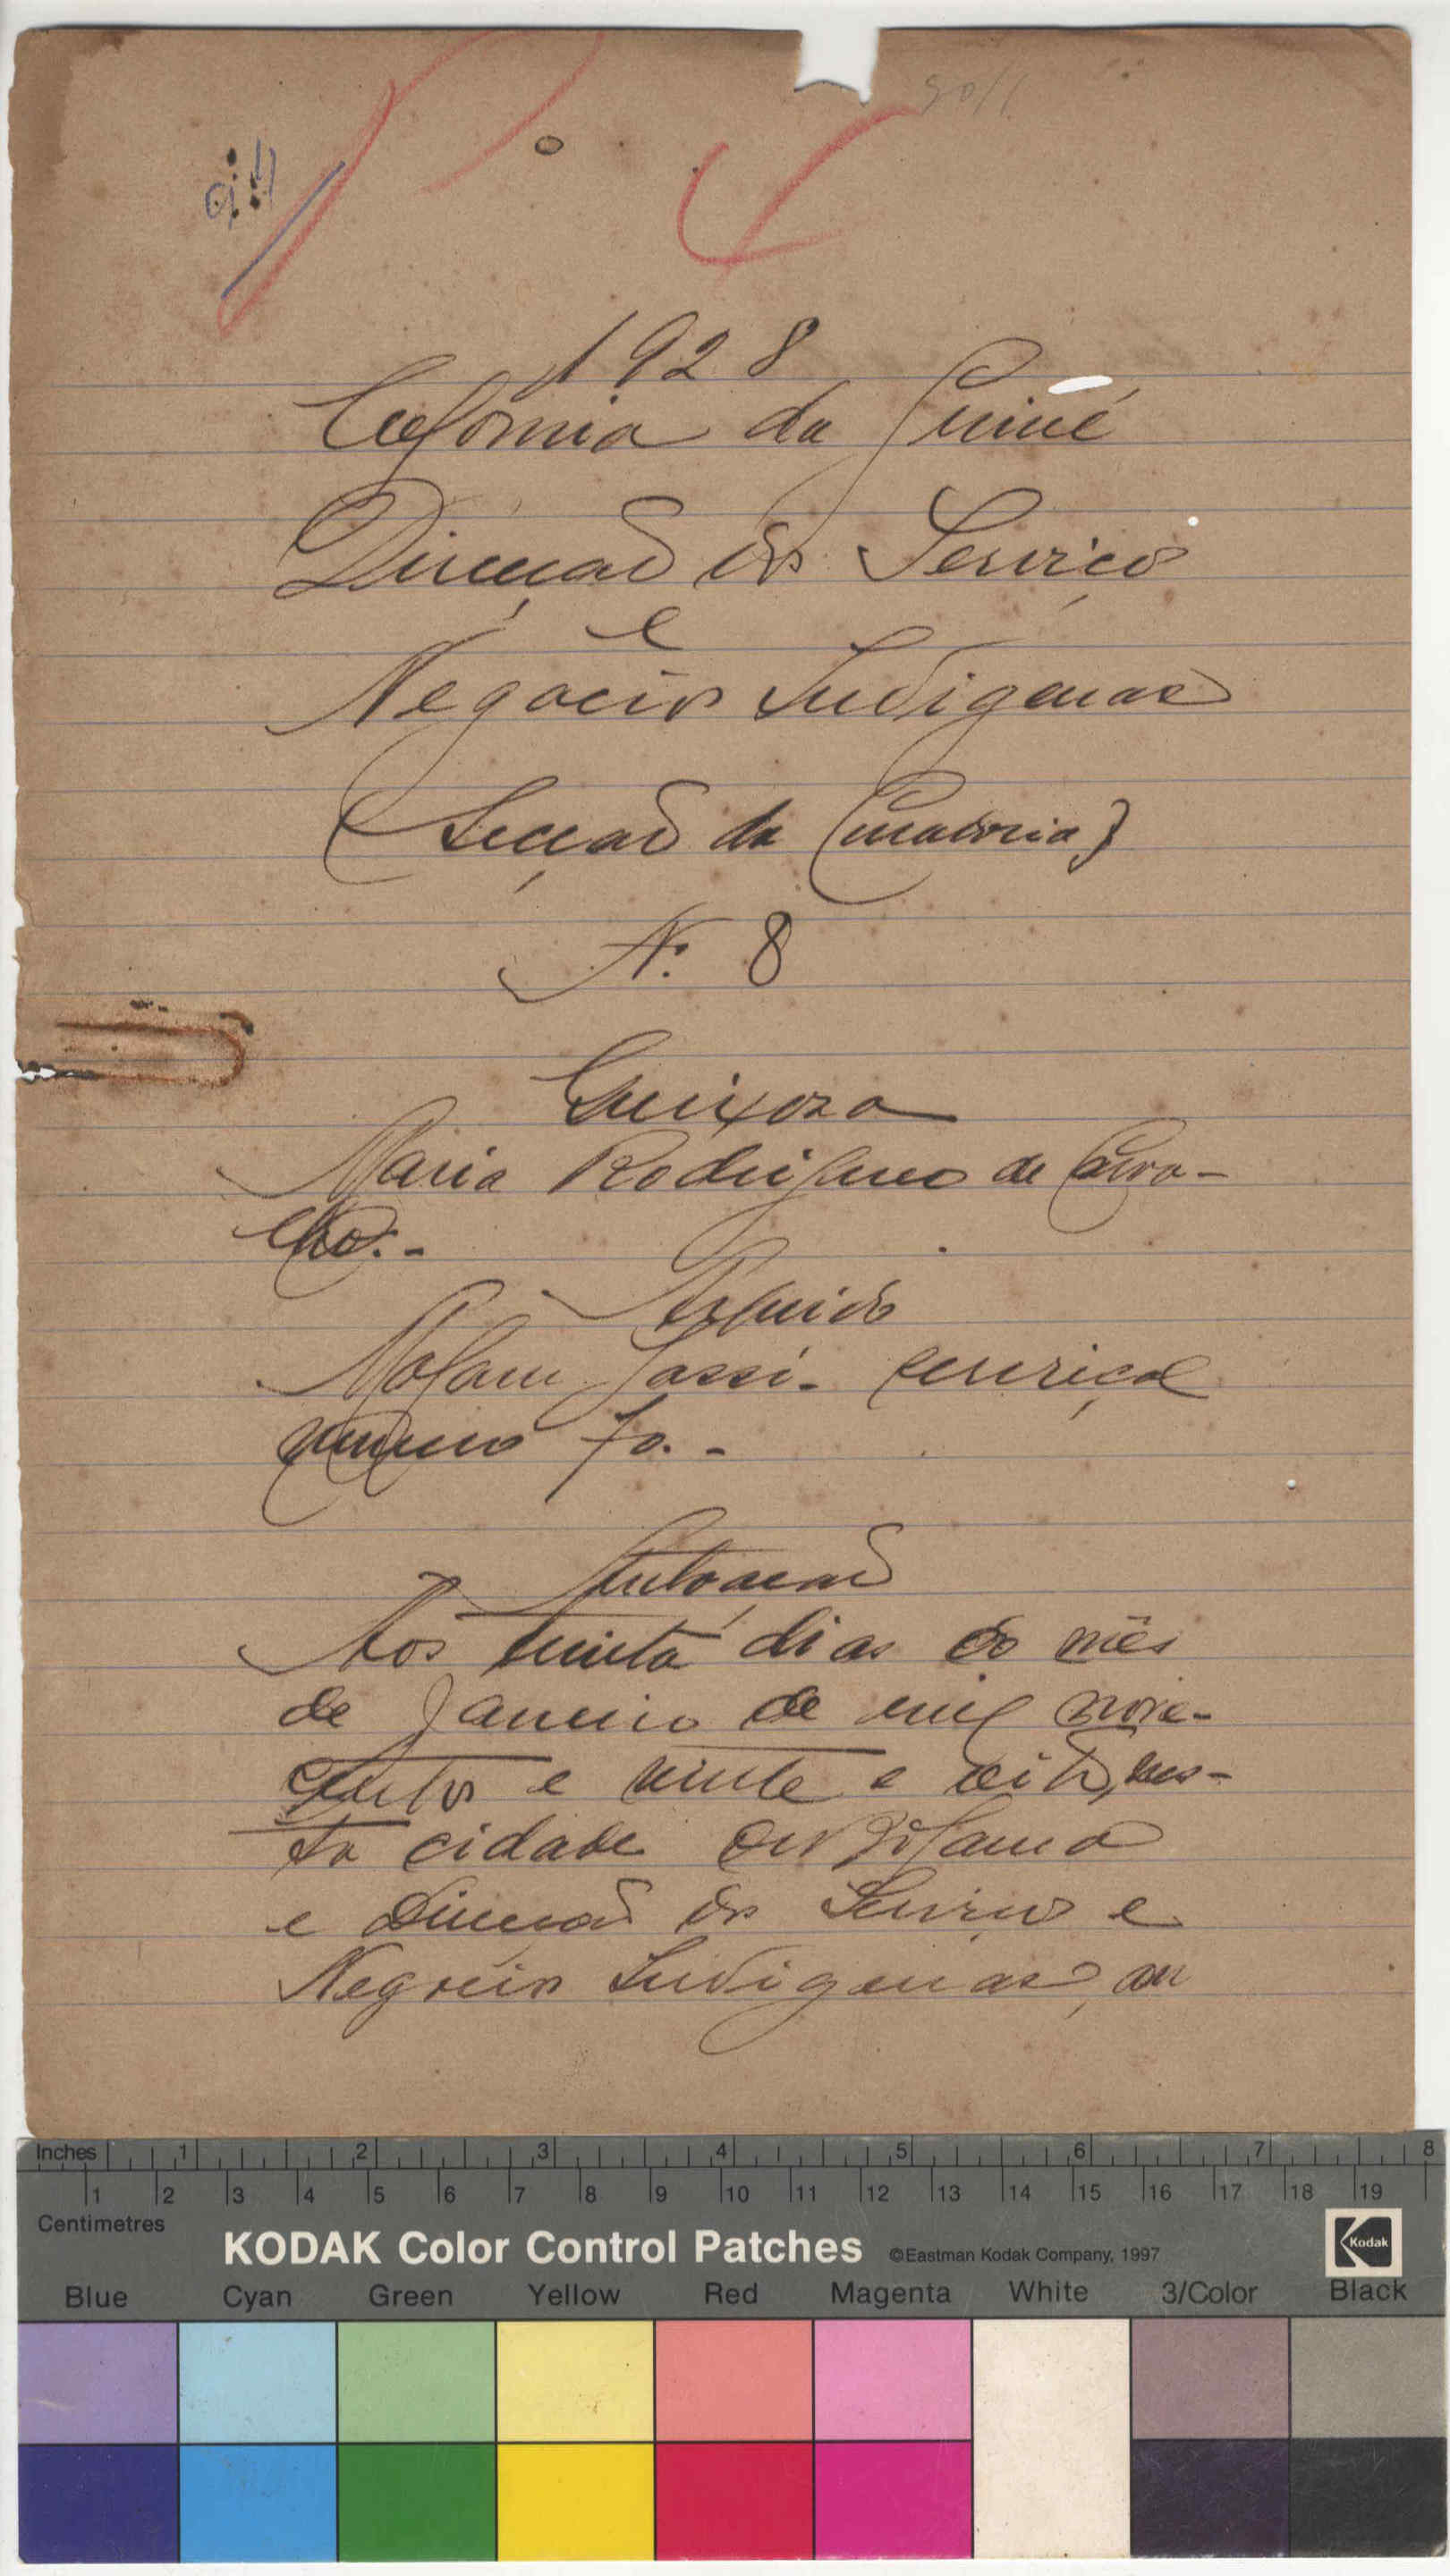 1928
Colónia da Guiné
Direcção dos Serviços
e
Negocios Indigenas
(Secção da Curadoria)
N.º 8
Queixosa
Maria Rodrigues de Carva-
lho.-
Arguido
Malam Sassi - serviçal
numero 70.-
Autoação
Aos trinta dias do mês
de Janeiro de mil nove-
centos e vinte e oito, nes-
ta cidade de Bolama
e Direcção dos Serviços e
Negocios Indigenas, em
Inches 1 2 3 4 5 6 7 8
1 2 3 4 5 6 7 8 9 10 11 12 13 14 15 16 17 18 19
Centimetres
KODAK Color Control Patches ©Eastman Kodak Company, 1997 Kodak
Blue Cyan Green Yellow Red Magenta White 3/Color Black